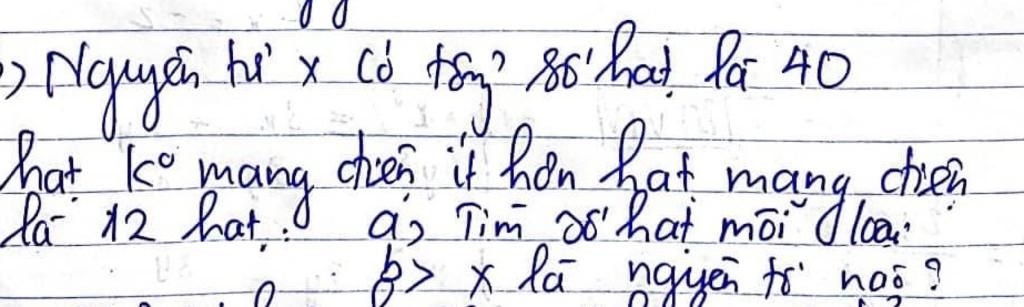 ) Nguyên tử x có tổng số hạt là 40
hạt ko mang điện ít hơn hạt mang điện
là 12 hạt. a, Tìm số hạt mỗi loại
b> x là nguyên tử nào?